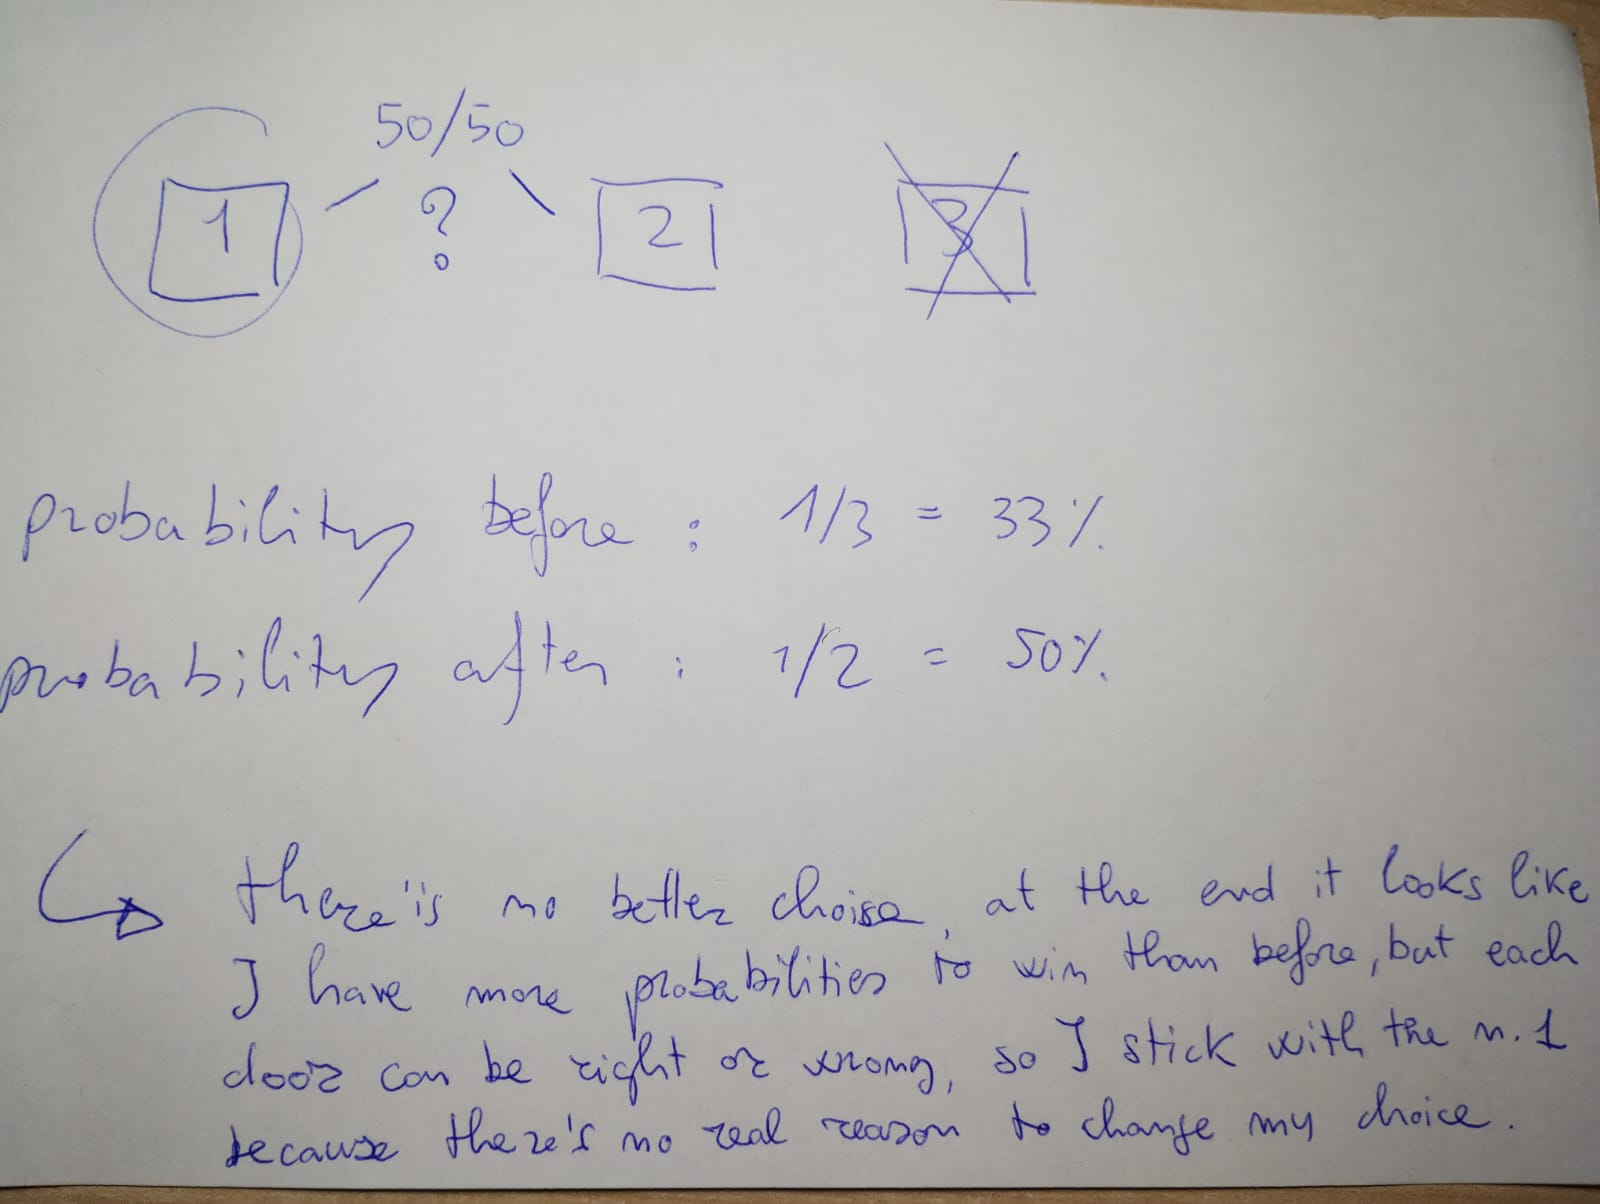 50/50
1 ? 2 3
probability before : 1/3 = 33%
probability after : 1/2 = 50%
there's no better choise, at the end it looks like
I have more probabilities to win than before, but each
door can be right or wrong, so I stick with the n. 1
because there's no real reason to change my choice.